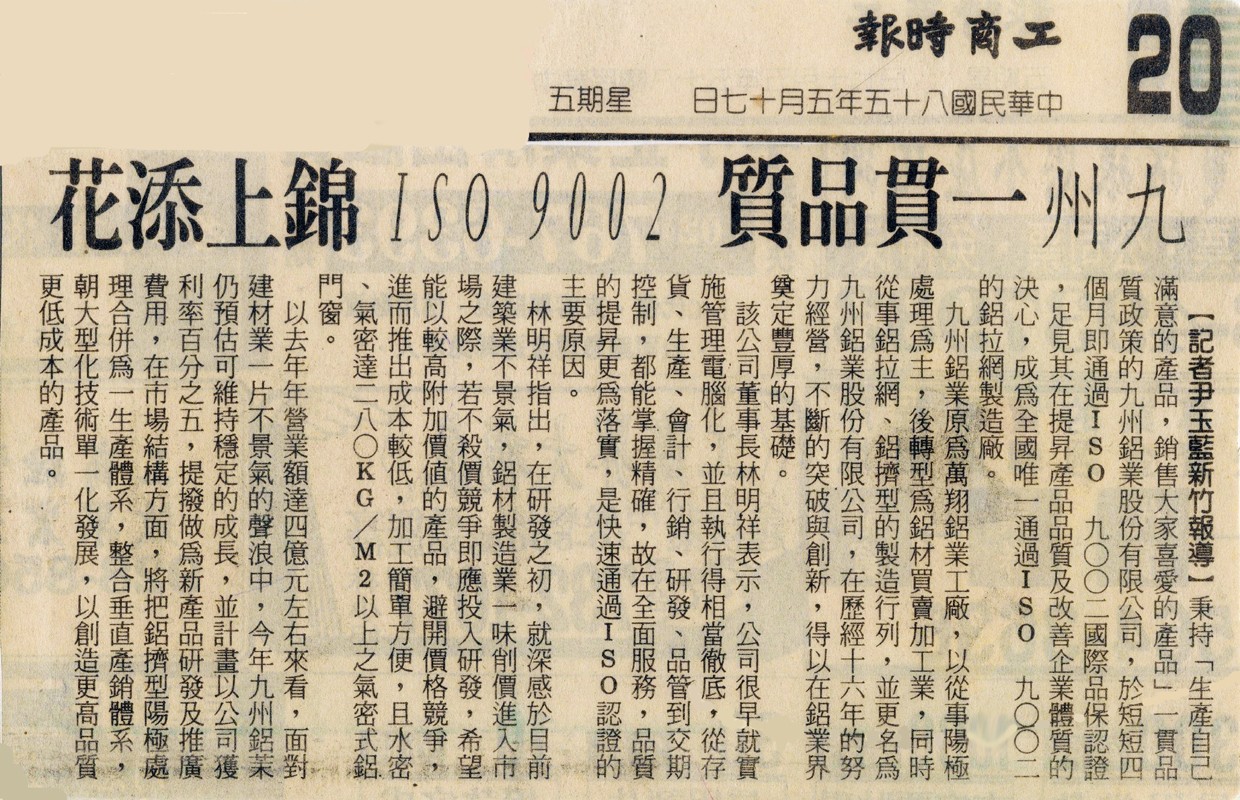 20
工商時報
中華民國八十五年五月十七日 星期五
九州一貫品質 ISO 9002 錦上添花
【記者尹玉藍新竹報導】秉持「生產自己
滿意的產品，銷售大家喜愛的產品」一貫品
質政策的九州鋁業股份有限公司，於短短四
個月即通過ISO 九〇〇二國際品保認證
，足見其在提昇產品品質及改善企業體質的
決心，成為全國唯一通過ISO 九〇〇二
的鋁拉網製造廠。
九州鋁業原為萬翔鋁業工廠，以從事陽極
處理為主，後轉型為鋁材買賣加工業，同時
從事鋁拉網、鋁擠型的製造行列，並更名為
九州鋁業股份有限公司，在歷經十六年的努
力經營，不斷的突破與創新，得以在鋁業界
奠定豐厚的基礎。
該公司董事長林明祥表示，公司很早就實
施管理電腦化，並且執行得相當徹底，從存
貨、生產、會計、行銷、研發、品管到交期
控制，都能掌握精確，故在全面服務，品質
的提昇更為落實，是快速通過ISO認證的
主要原因。
林明祥指出，在研發之初，就深感於目前
建築業不景氣，鋁材製造業一味削價進入市
場之際，若不殺價競爭即應投入研發，希望
能以較高附加價值的產品，避開價格競爭，
進而推出成本較低，加工簡單方便，且水密
、氣密達二八〇KG／M2以上之氣密式鋁
門窗。
以去年年營業額達四億元左右來看，面對
建材業一片不景氣的聲浪中，今年九州鋁業
仍預估可維持穩定的成長，並計畫以公司獲
利率百分之五，提撥做為新產品研發及推廣
費用，在市場結構方面，將把鋁擠型陽極處
理合併為一生產體系，整合垂直產銷體系，
朝大型化技術單一化發展，以創造更高品質
更低成本的產品。